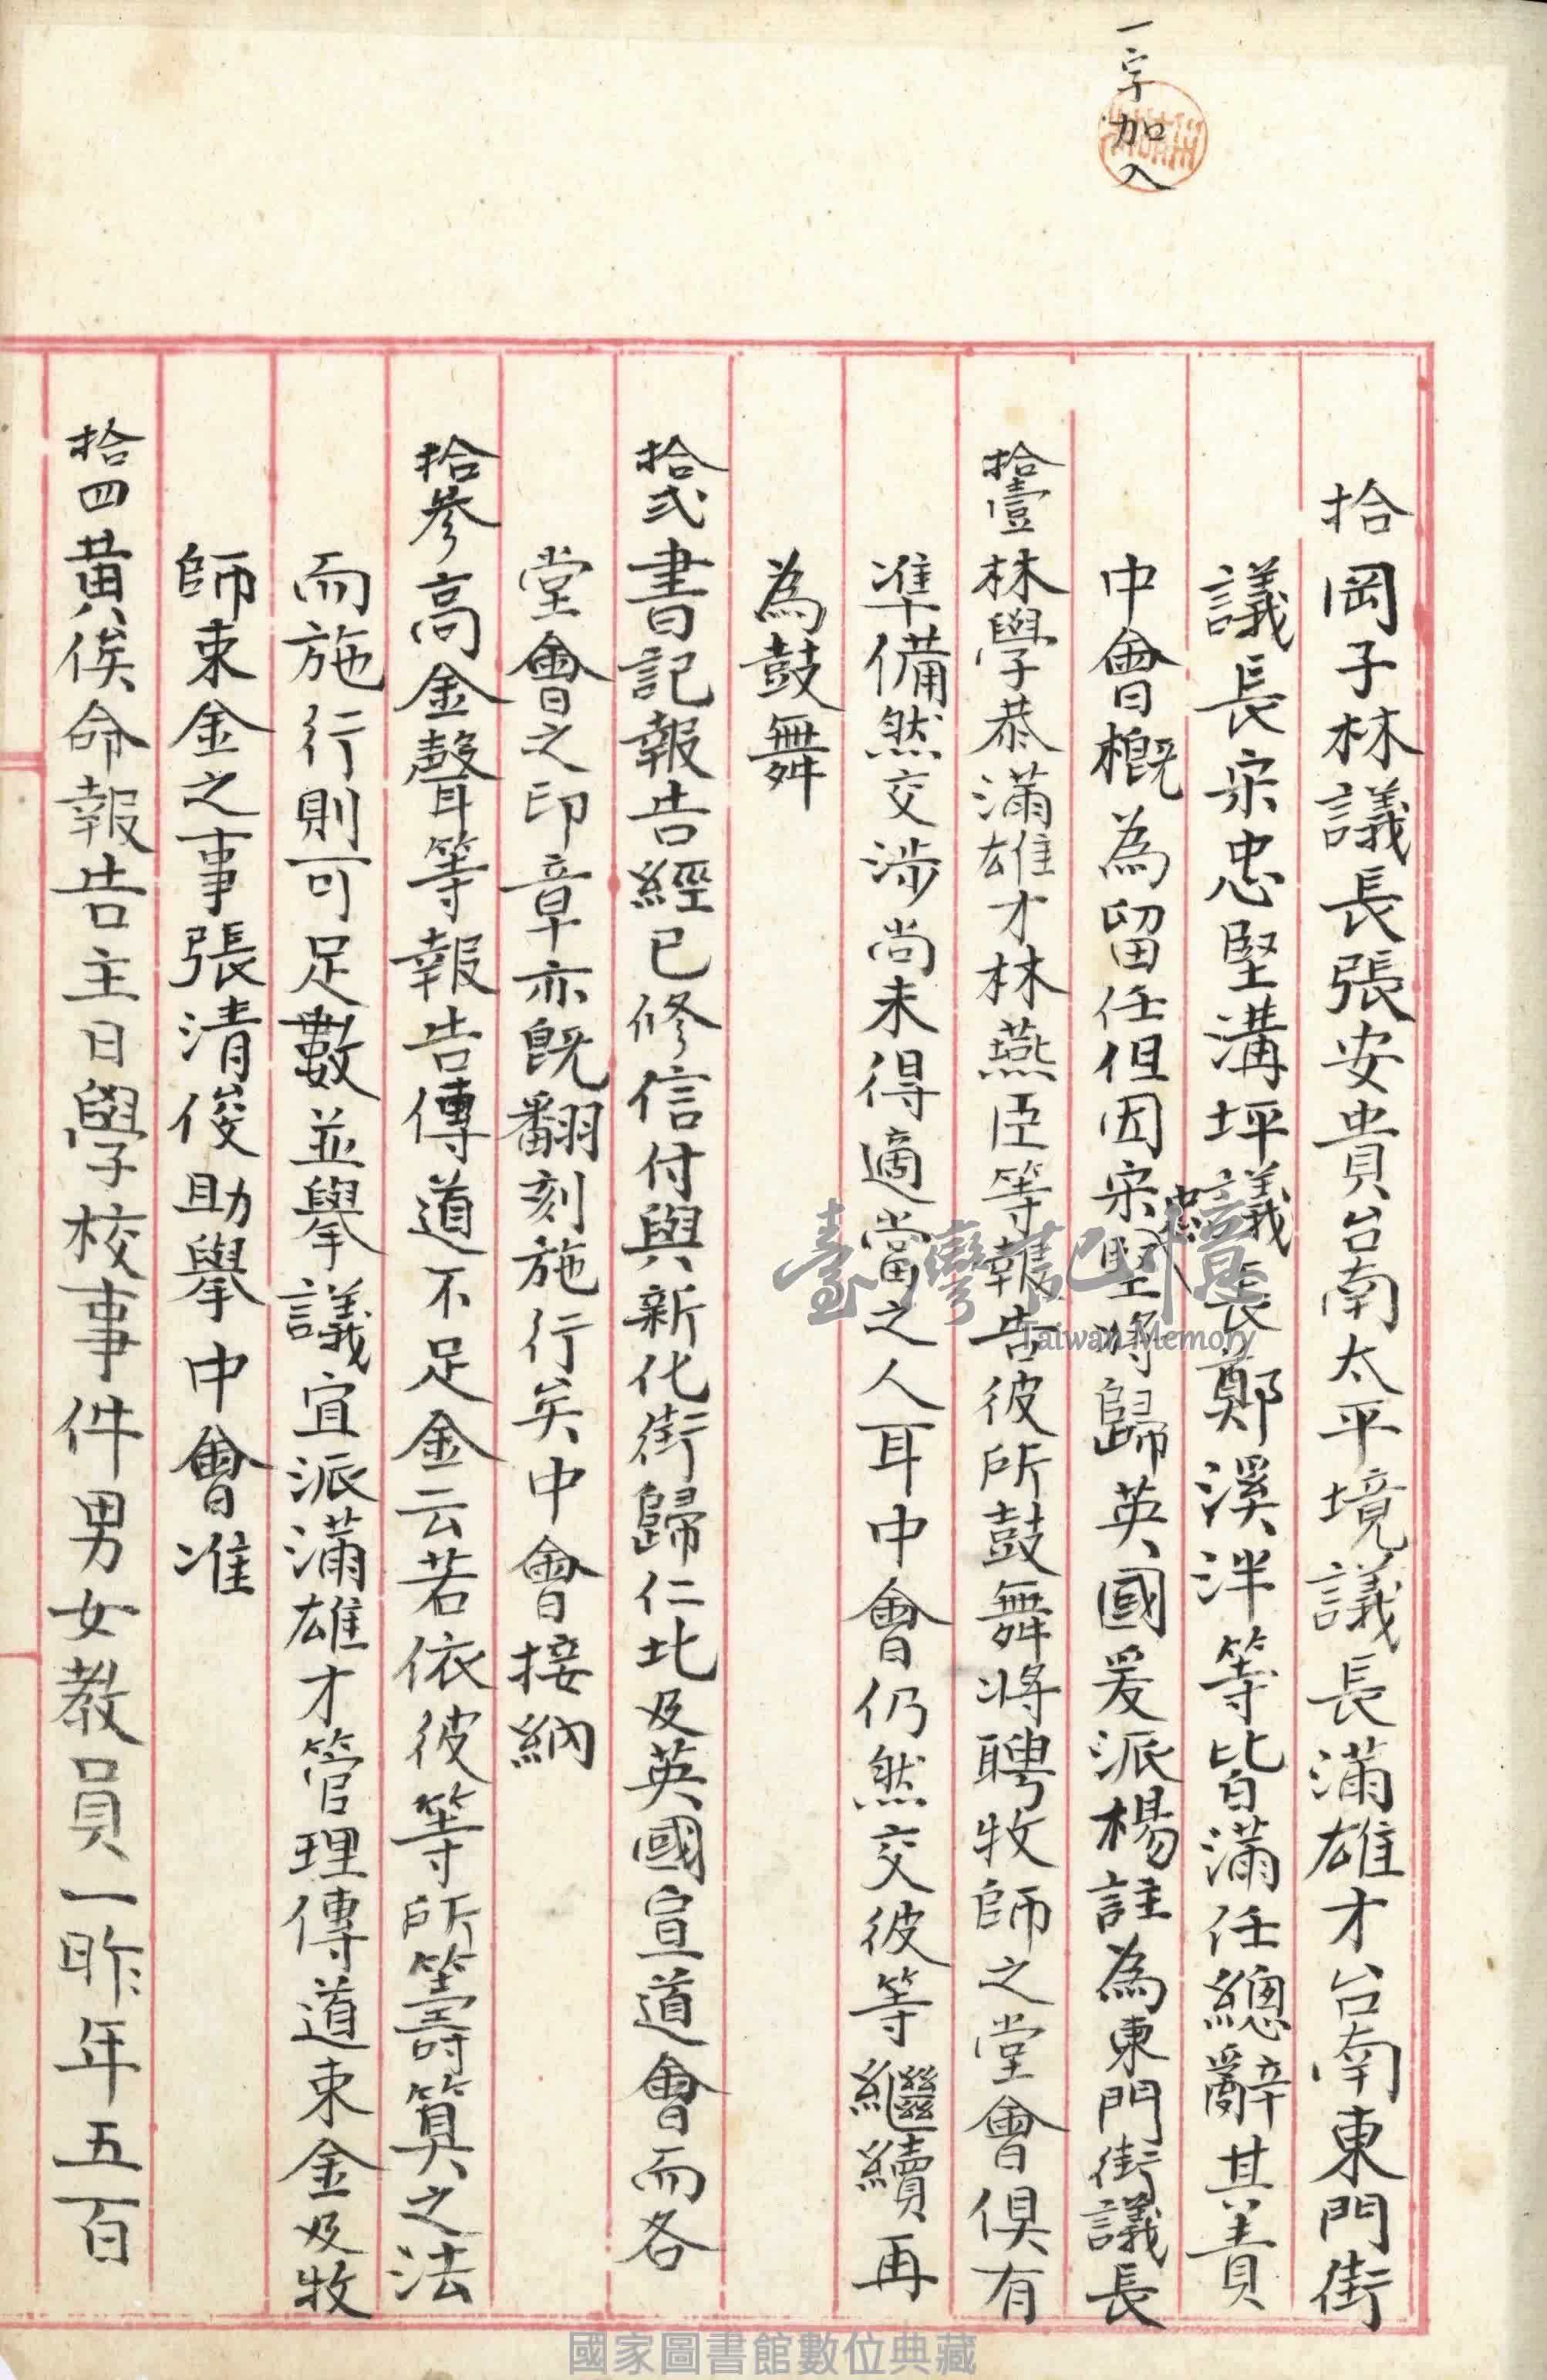 一字加入
拾 岡子林議長張安貴台南太平境議長滿雄才台南東門街
議長宋忠堅溝坪議長鄭溪泮等皆滿任總辭其責
中會概為留任但因宋忠堅將歸英國爰派楊註為東門街議長
拾壹 林學恭滿雄才林燕臣等報告彼所鼓舞將聘牧師之堂會俱有
準備然交涉尚未得適當之人耳中會仍然交彼等繼續再
為鼓舞
拾弍 書記報告經已修信付與新化街歸仁北及英國宣道會而各
堂會之印章亦既翻刻施行矣中會接納
拾參 高金聲等報告傳道不足金云若依彼等所籌算之法
而施行則可足數並舉議宜派滿雄才管理傳道束金及牧
師束金之事張清俊助舉中會准
拾四 黃俟命報告主日學校事件男女教員一昨年五百
臺灣記憶
Taiwan Memory
國家圖書館數位典藏